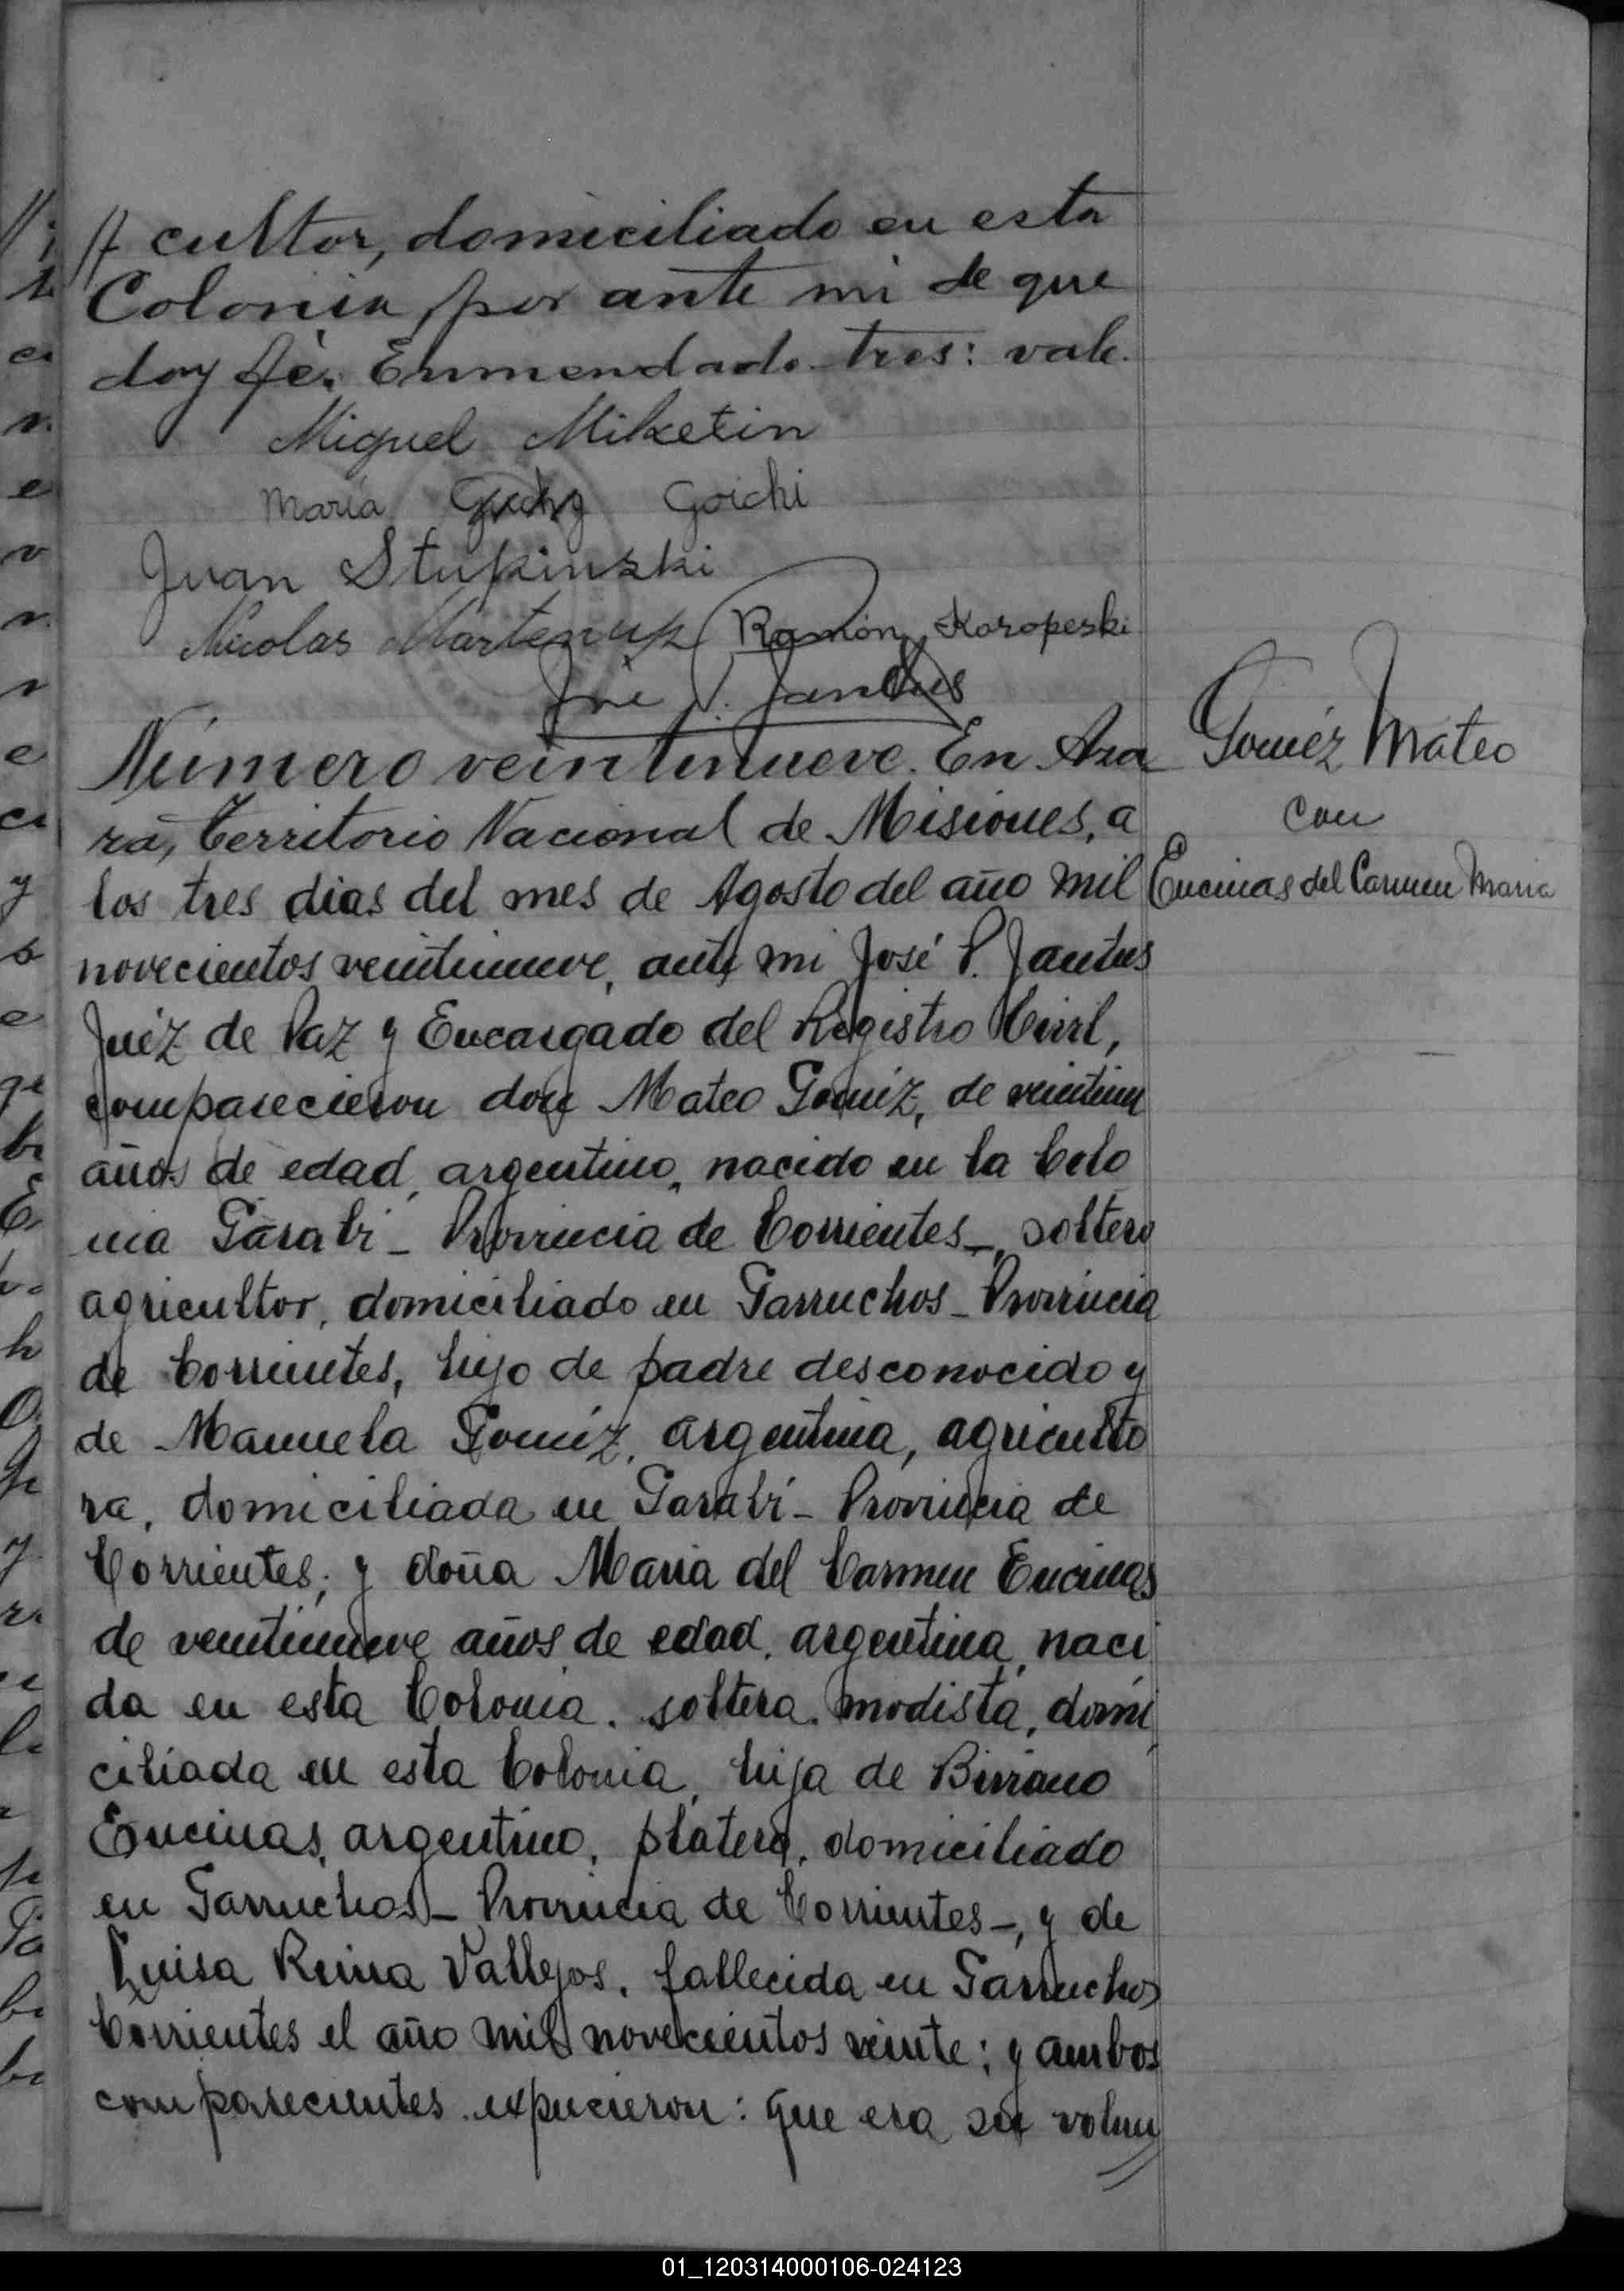 // cultor, domiciliado en esta
Colonia, por ante mi de que
doy fè. Enmendado tres: vale.
Miguel Miketin
Maria Goichi
Juan Stupinski
Nicolas Ramón Koropeski
José P. Jantus
Número veintinueve. En Aza
rá, Territorio Nacional de Misiones, a
los tres dias del mes de Agosto del año mil
novecientos veintinueve, ante mi José P. Jantus
Juéz de Paz y Encargado del Registro Civil,
comparecieron don Mateo Goméz, de veintiun
años de edad, argentino, nacido en la Colo
nia Garabí - Provincia de Corrientes -, soltero
agricultor, domiciliado en Garruchos - Provincia
de Corrientes, hijo de padre desconocido y
de Manuela Goméz, argentina, agriculto
ra, domiciliada en Garabí - Provincia de
Corrientes; y doña Maria del Carmen Encinas
de veintinueve años de edad, argentina, naci
da en esta Colonia, soltera, modista, domi
ciliada en esta Colonia, hija de
Encinas, argentino, platero, domiciliado
en Garruchos - Provincia de Corrientes -, y de
Luisa Reina Vallejos, fallecida en Garruchos
Corrientes el año mil novecientos veinte; y ambos
comparecientes expucieron: que era su volun
//
Goméz Mateo
con
Encinas del Carmen Maria
01_120314000106-024123